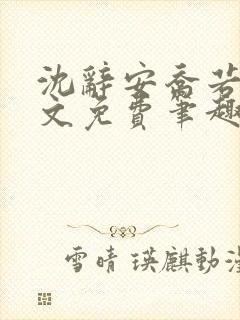 沈辭安喬若
文免費筆趣
雪晴瑛麒動漫